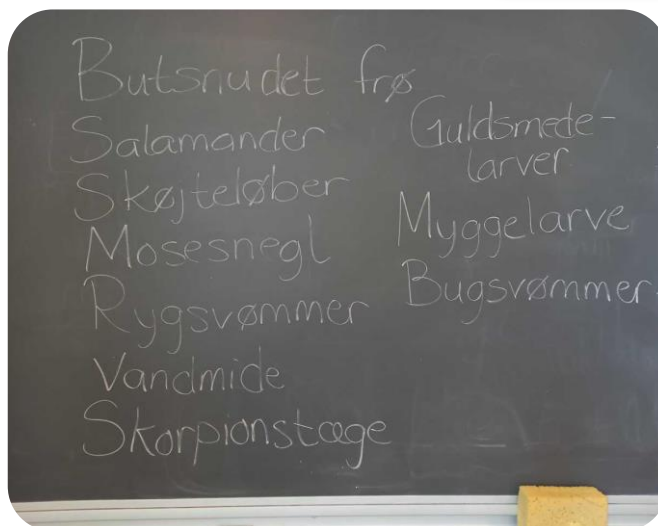 Butsnudet frø
Salamander
Skøjteløber
Mosesnegl
Rygsvømmer
Vandmide
Skorpionstæge
Guldsmede-
larver
Myggelarve
Bugsvømmer